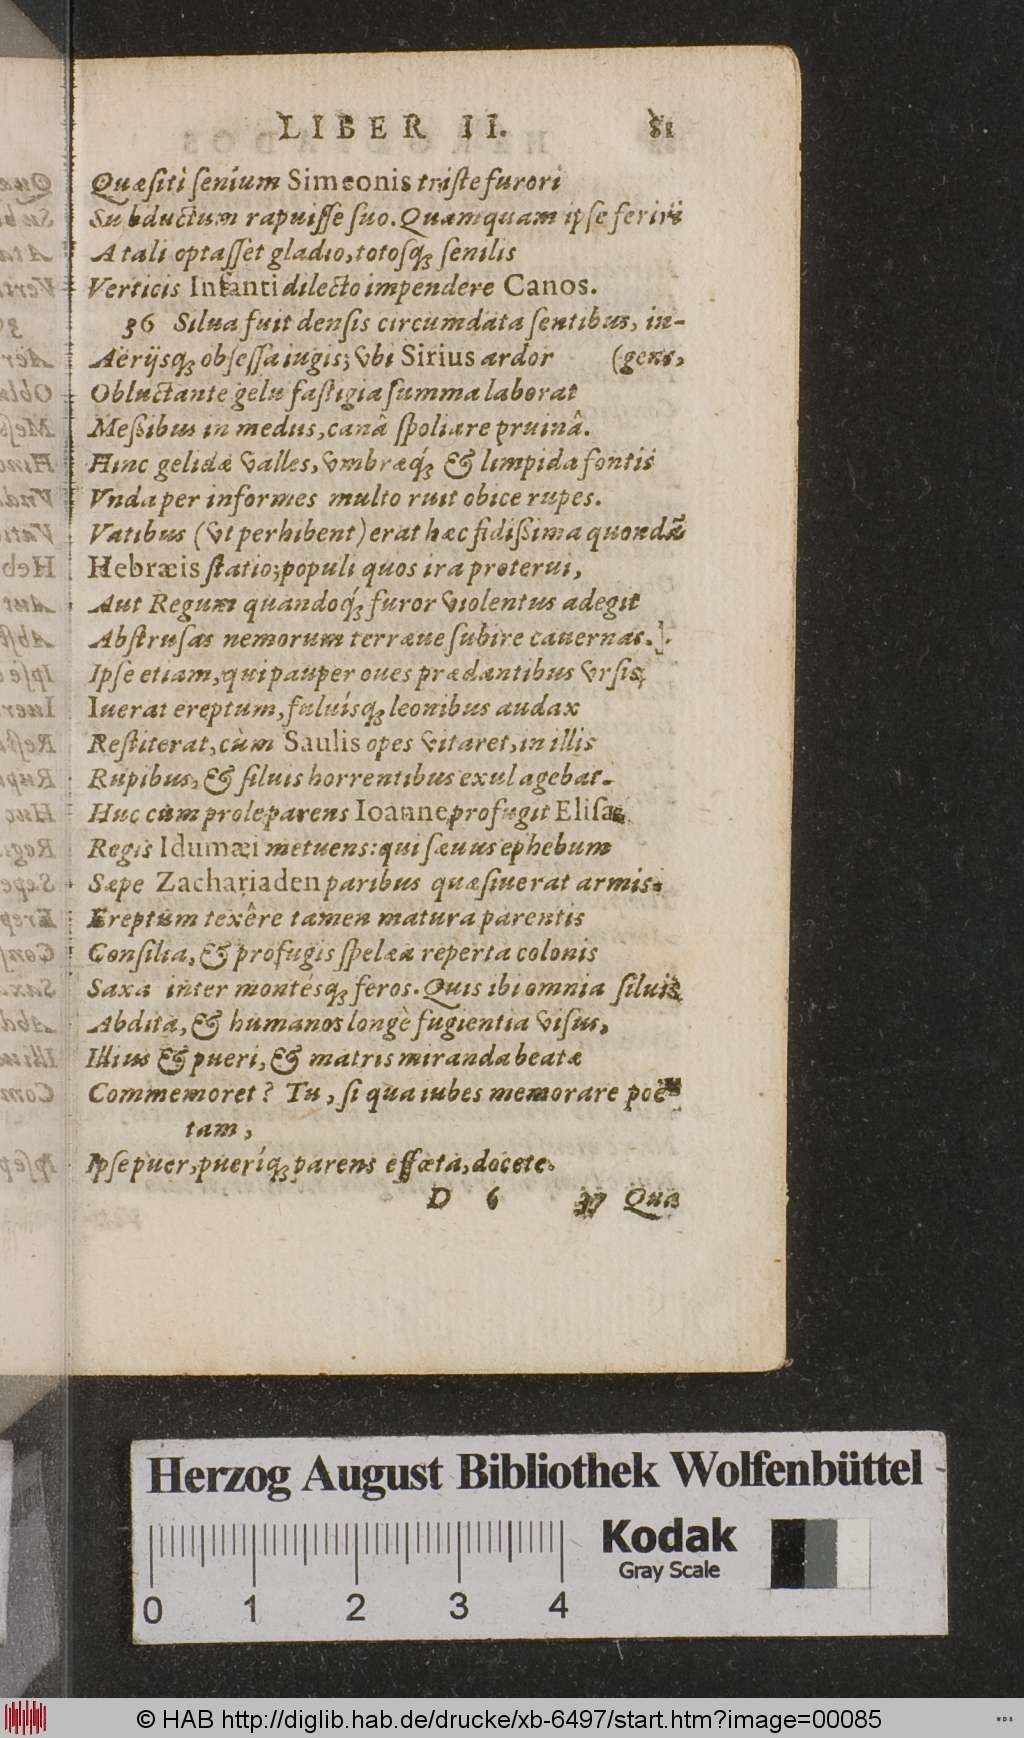 LIBER II. 81
Quæsiti senium Simeonis triste furori
Subductum rapuisse suo. Quamquam ipse feriri
A tali optasset gladio, totosq́; senilis
Verticis Infanti dilecto impendere Canos.
36 Silua fuit densis circumdata sentibus, in-
Aërijsq; obsessa iugis; vbi Sirius ardor (gens,
Obluctante gelu fastigia summa laborat
Messibus in medijs, canâ spoliare pruinâ.
Hinc gelidæ valles, vmbræq́; & limpida fontis
Vnda per informes multo ruit obice rupes.
Vatibus (vt perhibent) erat hæc fidissima quondã
Hebræis statio; populi quos ira proterui,
Aut Regum quandoq́; furor violentus adegit
Abstrusas nemorum terræue subire cauernas.
Ipse etiam, qui pauper oues prædantibus vrsis
Iuerat ereptum, fuluísq; leonibus audax
Restiterat, cùm Saulis opes vitaret, in illis
Rupibus, & siluis horrentibus exul agebat.
Huc cum prole parens Ioanne profugit Elisæ
Regis Idumæi metuens: qui sæuus ephebum
Sæpe Zachariaden paribus quæsiuerat armis.
Ereptum texêre tamen matura parentis
Consilia, & profugis spelæa reperta colonis
Saxa inter montésq; feros. Quis ibi omnia siluis
Abdita, & humanos longè fugientia visus,
Illius & pueri, & matris miranda beatæ
Commemoret? Tu, si qua iubes memorare poë-
tam,
Ipse puer, pueríq; parens effæta, docete.
D 6 37 Qua
Herzog August Bibliothek Wolfenbüttel
Kodak
Gray Scale
0 1 2 3 4
© HAB http://diglib.hab.de/drucke/xb-6497/start.htm?image=00085